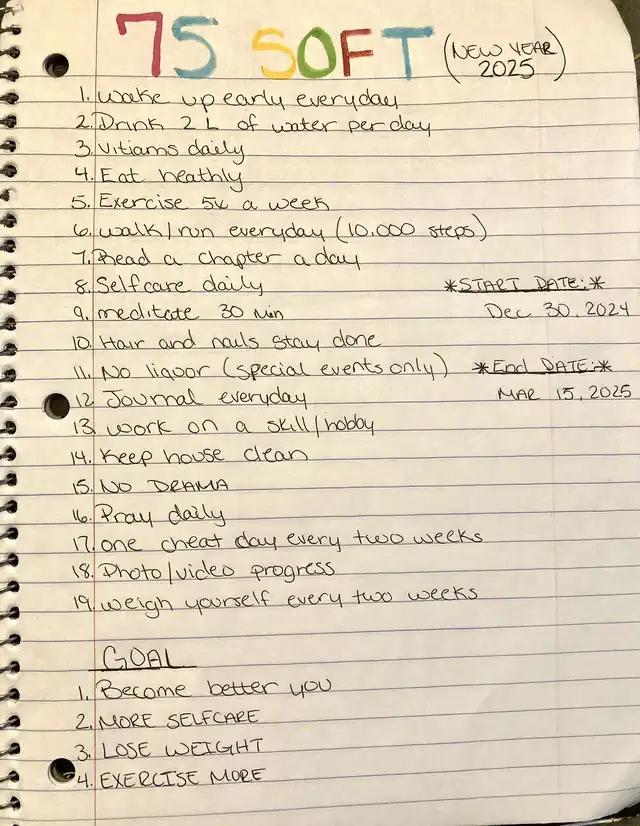 75 SOFT (NEW YEAR 2025)
1. Wake up early everyday
2. Drink 2 L of water per day
3. Vitiams daily
4. Eat heathly
5. Exercise 5x a week
6. Walk/run everyday (10.000 steps)
7. Read a chapter a day
8. Selfcare daily
*START DATE:*
9. meditate 30 min
Dec 30, 2024
10. Hair and nails stay done
11. No liquor (special events only)
*End DATE:*
12. Journal everyday
MAR 15, 2025
13. work on a skill/hobby
14. Keep house clean
15. NO DRAMA
16. Pray daily
17. one cheat day every two weeks
18. Photo/video progress
19. weigh yourself every two weeks
GOAL
1. Become better you
2. MORE SELFCARE
3. LOSE WEIGHT
4. EXERCISE MORE